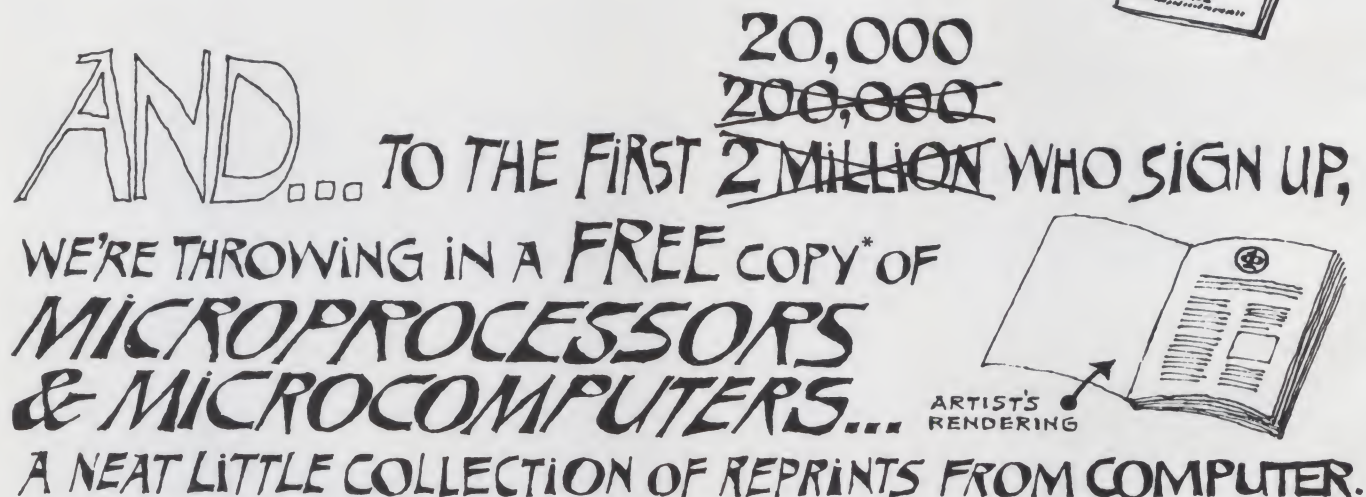 20,000
200,000
AND... TO THE FIRST 2 MILLION WHO SIGN UP,
WE'RE THROWING IN A FREE COPY* OF
MICROPROCESSORS
& MICROCOMPUTERS...
ARTIST'S
RENDERING
A NEAT LITTLE COLLECTION OF REPRINTS FROM COMPUTER.